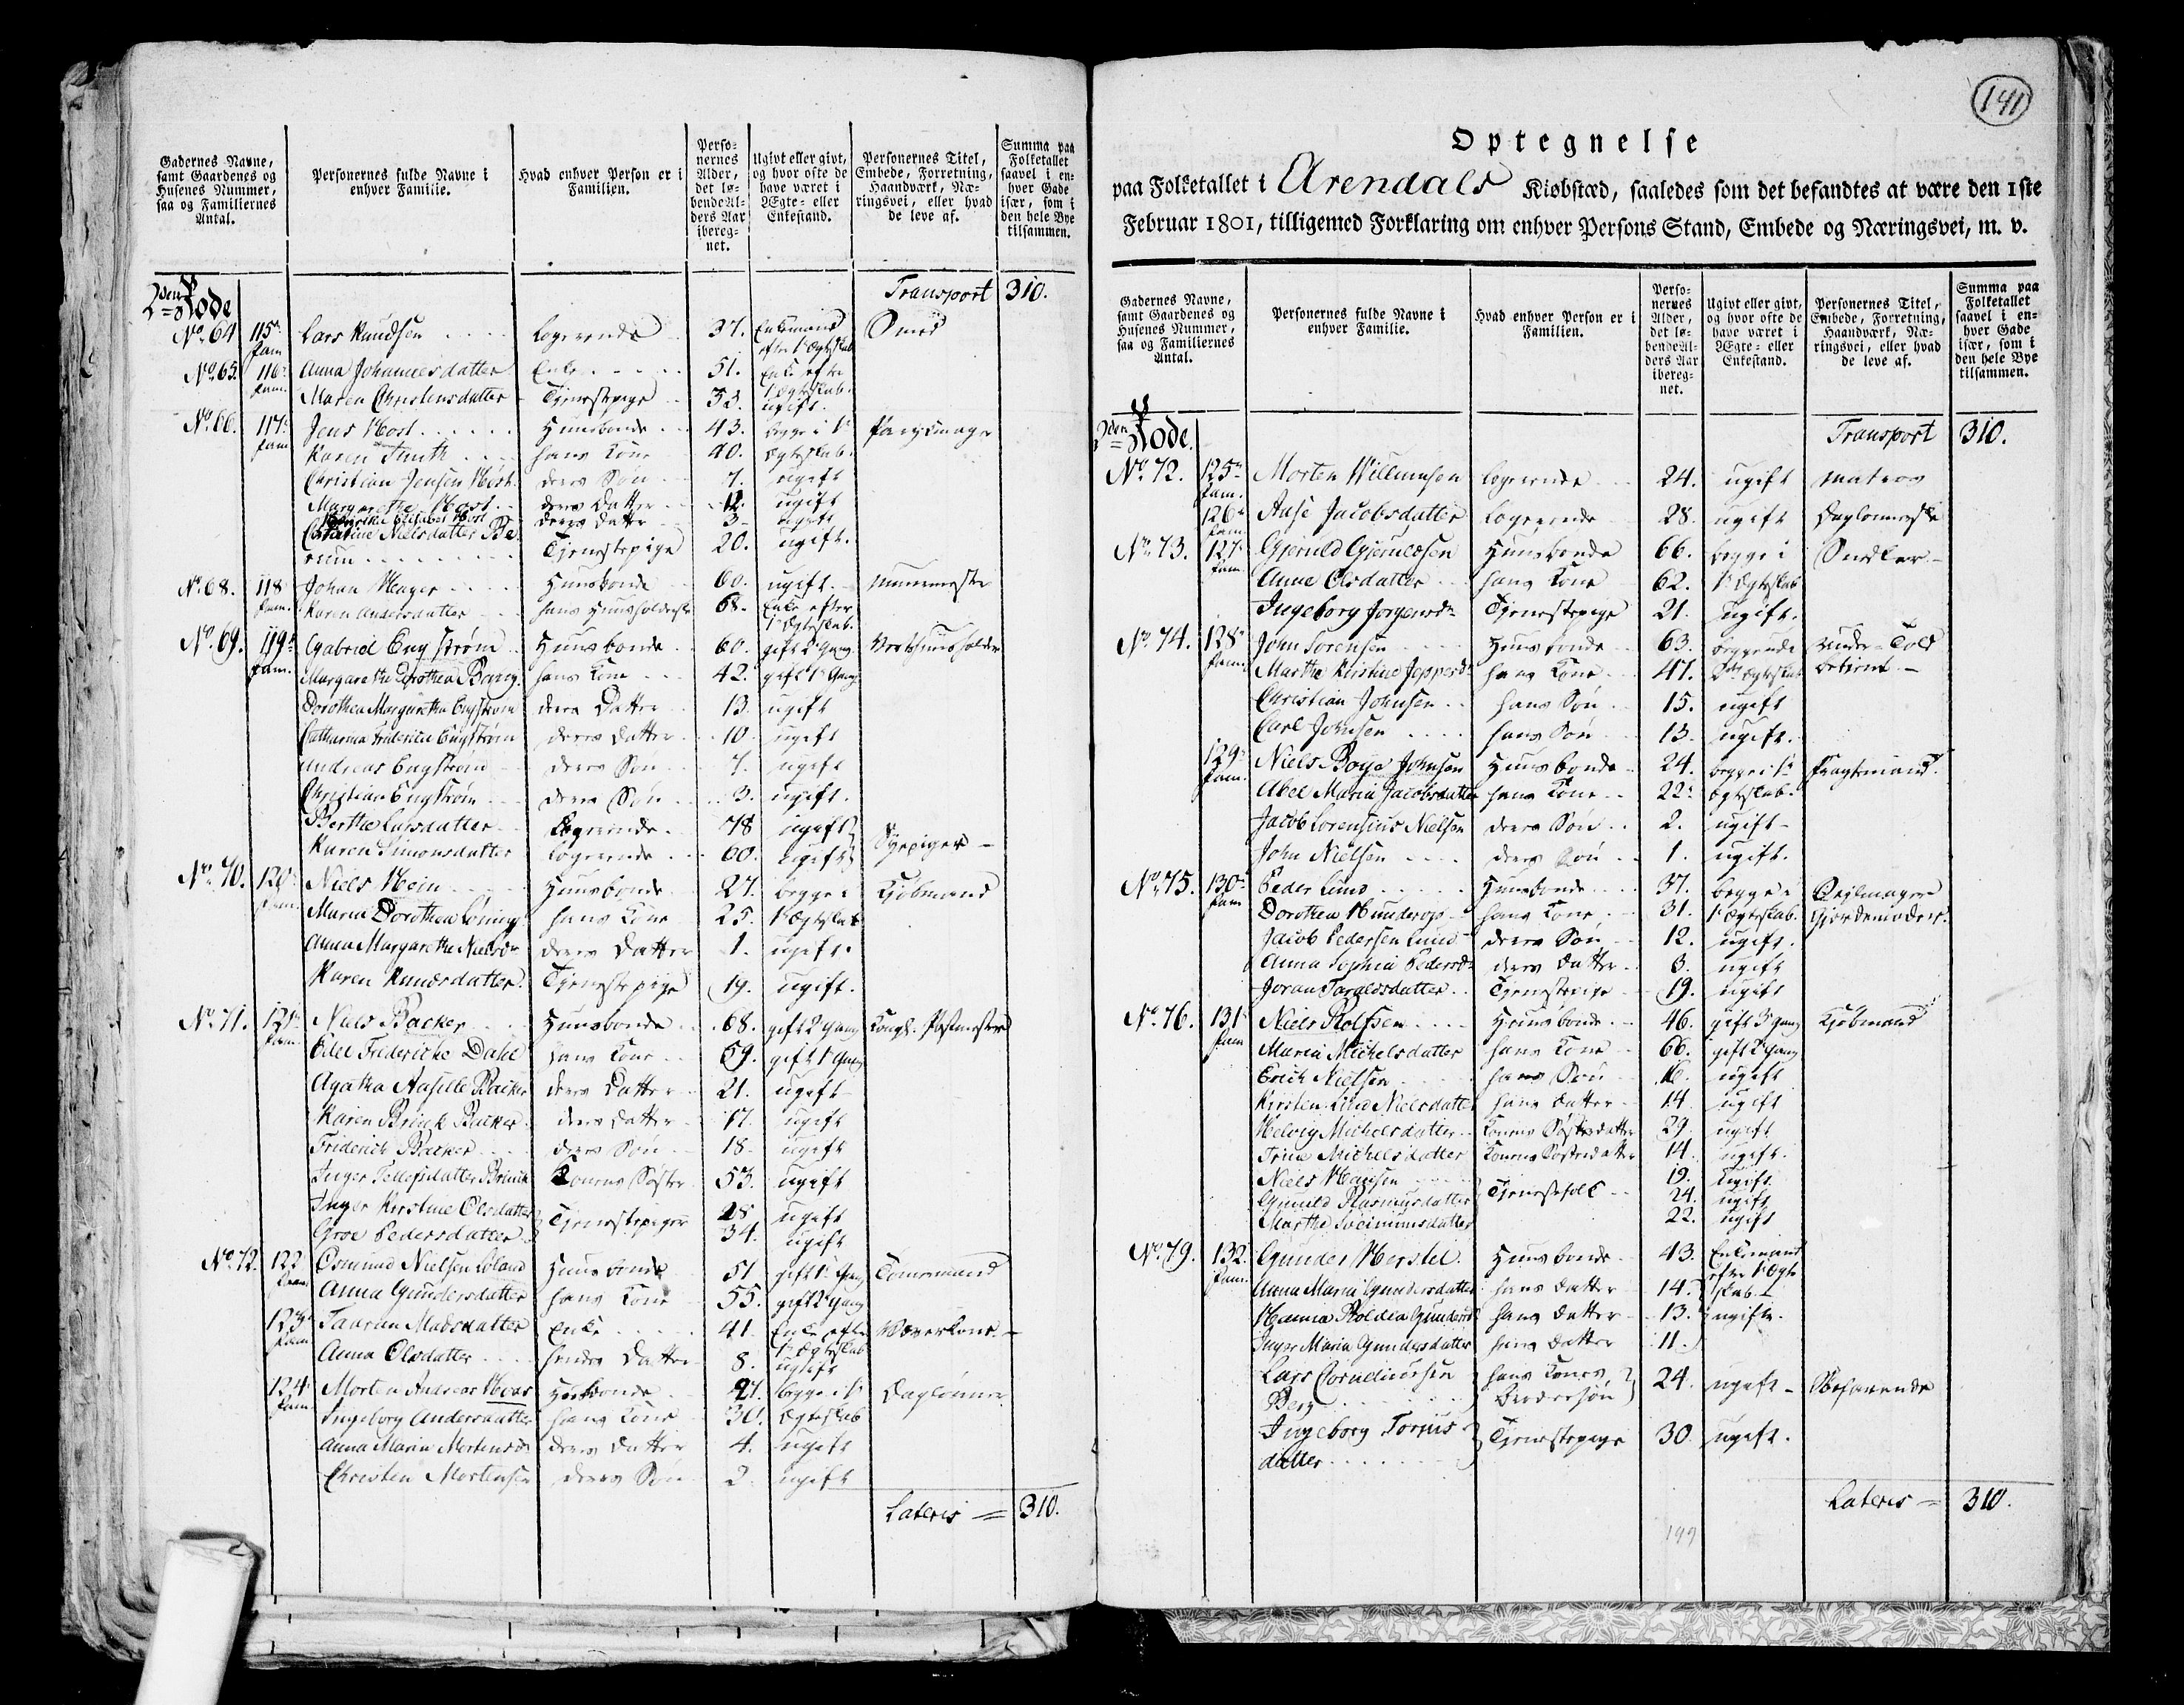 Gadernes Navne, samt Gaardenes og Husenes Nummer, saa og Familiernes Antal.
Personernes fulde Navne i enhver Familie.
Hvad enhver Person er i Familien.
Personernes Alder, det løbende Alders Aar iberegnet.
Ugivt eller givt, og hvor ofte de have været i Ægte- eller Enkestand.
Personernes Titel, Embede, Forretning, Haandværk, Næringsvei, eller hvad de leve af.
Summa paa Folketallet saavel i enhver Gade især, som i den hele Bye tilsammen.
2den Rode Transport 310.
No. 64 115de fam Lars Knudsen logerende 37. Enkemand efter 1te Ægteskab Smed
No. 65. 116de fam. Anna Johannesdatter Enke 51. Enke efter 1te Ægteskab.
Maren Christensdatter Tjenestepige 33. ugift.
No. 66. 117de fam Jens Høst Huusbonde 43. begge i 1te Parykmager
Karen Smith hans Kone 40. Ægteskab.
Christian Jensen Høst deres Søn 7. ugift
Margarethe Høst deres Datter 12. ugift
Elisabet Høst deres Datter 3 ugift
Nielsdatter Berum Tjenestepige 20. ugift.
No. 68. 118 fam. Johan Meyer Huusbonde 60. ugift. Murmester
Karen Andersdatter hans Huusholderske 68. Enke efter 1te Ægteskab.
No. 69. 119de fam. Gabriel Engstrøm Huusbonde 60. gift 2de Gang Vertshuusholder
Margarethe Dorothea Bang. hans Kone 42. gift 1te Gang
Dorothea Margaretha Engstrøm deres Datter 13. ugift
Catharina Friderica Engstrøm deres Datter 10. ugift
Andreas Engstrøm deres Søn 7. ugift
Christian Engstrøm deres Søn 3. ugift.
Berthe Larsdatter logerende 78 ugift
Karen Simonsdatter logerende 60. ugift Syepiger
No. 70. 120 fam. Niels Hein Huusbonde 27. begge i Kjøbmand
Maria Dorothea Løning hans Kone 25. 1te Ægteskab
Anna Margarethe Nielsdr deres Datter 1. ugift.
Karen Knudsdatter. Tjenestepige 19. ugift.
No. 71. 121de fam. Niels Backer Huusbonde 68. gift 2de Gang Kongl. Postmester
Edel Fredericke Dahl hans Kone 59. gift 1te Gang
Agatha Backer deres Datter 21. ugift
Karen Brinck Backer deres Datter 17. ugift
Friderich Backer deres Søn 18. ugift
Inger Tellefsdatter Brinck Konens Søster 53. ugift
Inger Kirstine Olsdatter Tjenestepiger 28 ugift
Groe Pedersdatter 34. ugift
No. 72. 122 fam. Osmund Nielsen Løland Huusbonde 51 gift 1te Gang Tømermand
Anna Gundersdatter hans Kone 55. gift 2de Gang
123de fam Taaran Madsdatter Enke 41. Enke efter 1te Ægteskab Væverkone
Anna Olsdatter hendes Datter 8. ugift
124de fam. Morten Andreas Huusbonde 27. begge i 1te Dagløner
Ingeborg Andersdatter hans Kone 30. Ægteskab
Anna Maria Mortensdr deres Datter 4. ugift
Christen Mortensen deres Søn 2. ugift
Lateris = 310.
141
Optegnelse
paa Folketallet i Arendals Kiøbstæd, saaledes som det befandtes at være den 1ste
Februar 1801, tilligemed Forklaring om enhver Persons Stand, Embede og Næringsvei, m. v.
Gadernes Navne, samt Gaardenes og Husenes Nummer, saa og Familiernes Antal.
Personernes fulde Navne i enhver Familie.
Hvad enhver Person er i Familien.
Personernes Alder, det løbende Alders Aar iberegnet.
Ugivt eller givt, og hvor ofte de have været i Ægte- eller Enkestand.
Personernes Titel, Embede, Forretning, Haandværk, Næringsvei, eller hvad de leve af.
Summa paa Folketallet saavel i enhver Gade især, som i den hele Bye tilsammen.
2den Rode. Transport 310.
No. 72. 125de fam. Morten Willumsen logerende 24. ugift matros
126de fam. Aase Jacobsdatter logerende 28. ugift
No. 73. 127de fam. Gjeruld Gjeruldsen Huusbonde 66. begge i Snedker
Anne Olsdatter hans Kone 62. 1te Ægteskab
Ingeborg Jorgensdr Tjenestepige 21. ugift.
No. 74. 128de fam. John Sorensen Huusbonde 63. begge Under-Told
Marthe Kirstine Jeppesdr hans Kone 47. 2det Ægteskab betient
Christian Johnsen hans Søn 15. ugift
Carl Johnsen hans Søn 13. ugift.
129de fam. Niels Boye Johnsen Huusbonde 24. begge i 1te Fragtemand.
Abel Maria Jacobsdatter hans Kone 22. Ægteskab.
Jacob Lorensius Nielsen deres Søn 2. ugift
John Nielsen deres Søn 1. ugift.
No. 75. 130de fam Peder Lund Huusbonde 37. begge i Seilmager
Dorothea Hunderop hans Kone 31. 1te Ægteskab. Gjordemoder.
Jacob Pedersen Lund deres Søn 12. ugift.
Anna Sophia Pedersdr deres Datter 8. ugift
Joran Taraldsdatter Tjenestepige 19. ugift
No. 76. 131 fam Niels Rolfsen Huusbonde 46. gift 3de Gang Kjøbmand
Maria Michelsdatter hans Kone 66. gift 2de Gang
Erich Nielsen hans Søn 16. ugift
Kirsten Nielsdatter hans Datter 14 ugift
Helvig Michelsdatter Konens Søsterdatter 29. ugift
Trine Michelsdatter Konens Søsterdatter 14. ugift.
Niels Hansen 19. ugift
Gunild Rasmusdatter Tjenestefolk 24. ugift
Marthe Sveinumsdatter 22. ugift
No. 79. 132. fam. Gunder Herstel Huusbonde 43. Enkemand efter 1te Ægteskab
Anna Maria Gundersdatter hans Datter 14.
Gundersd hans Datter 13. ugifte.
Inger Maria Gundersdatter hans Datter 11.
Lars Corneliusen Berg hans Kones Brodersøn 24. ugift Søefarende
Ingeborg Torjusdatter Tjenestepige 30. ugift.
Lateris = 310.
199